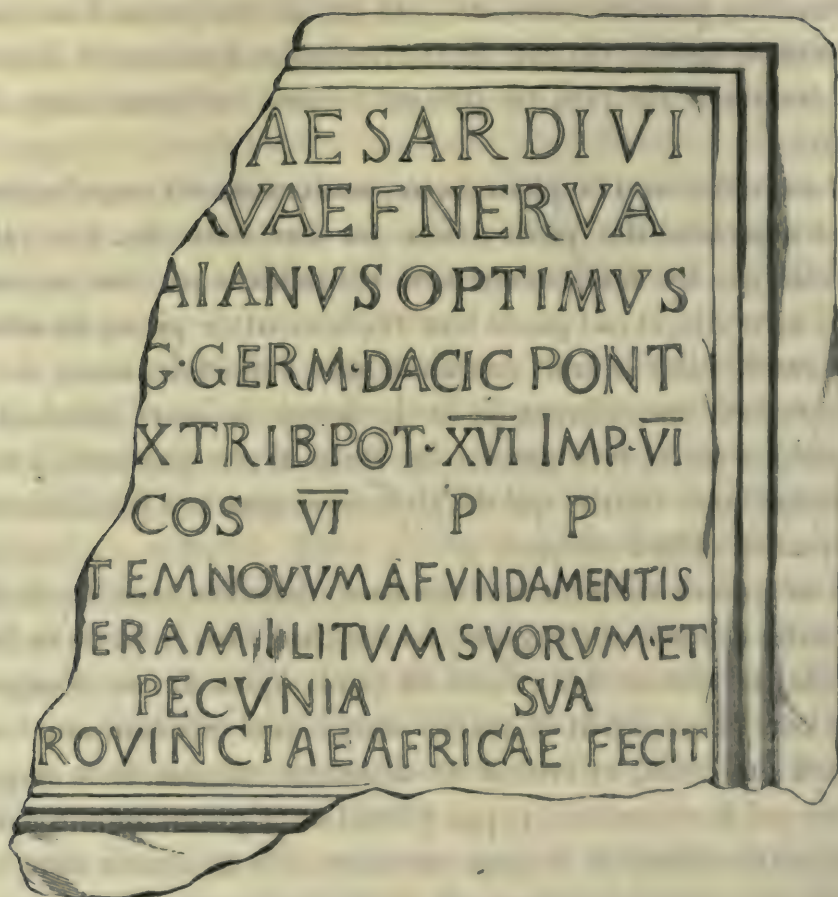 AESAR DIVI
RVAE F NERVA
AIANVS OPTIMVS
G·GERM·DACIC PONT
X TRIB POT·X̅V̅I̅ IMP·V̅I̅
COS V̅I̅ P P
TEM NOVVM A FVNDAMENTIS
ERA MILITVM SVORVM·ET
PECVNIA SVA
ROVINCIAE AFRICAE FECIT